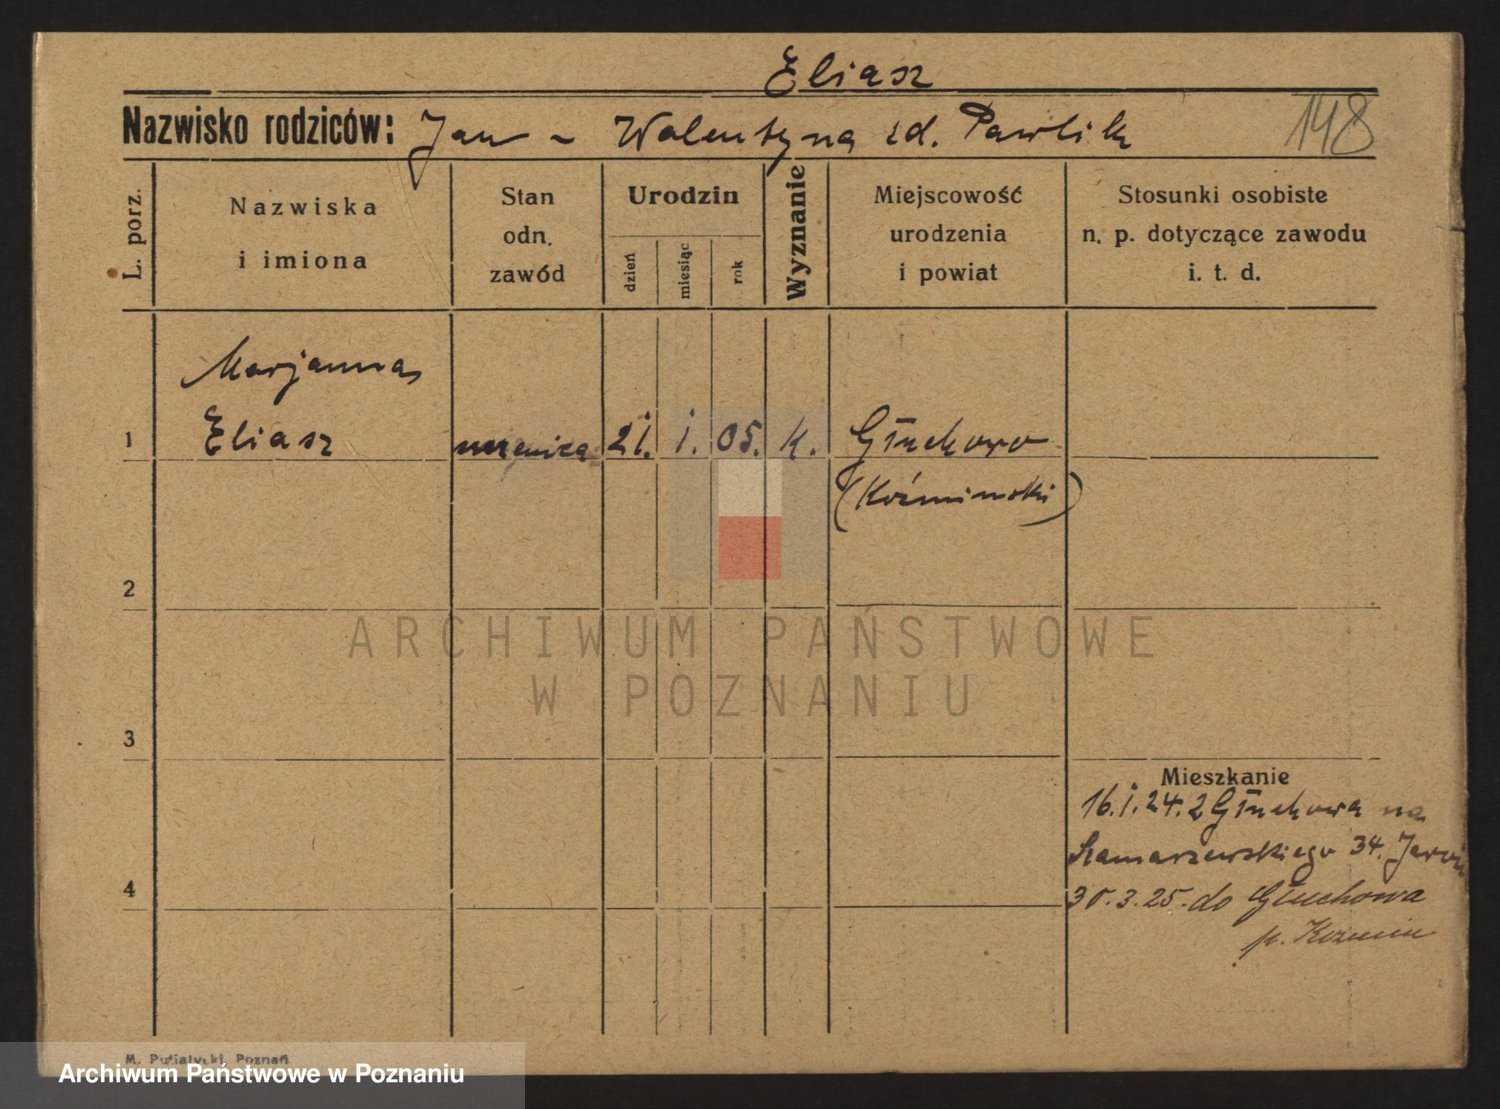 Eliasz
Nazwisko rodziców: Jan - Walentyna zd. Pawlik
148
L. porz.
Nazwiska
i imiona
Stan
odn.
zawód
Urodzin
dzień
miesiąc
rok
Wyznanie
Miejscowość
urodzenia
i powiat
Stosunki osobiste
n. p. dotyczące zawodu
i. t. d.
Marjanna
1 Eliasz uczenica 21. 1. 05. k. Głuchowo
(Koźmiński)
2
ARCHIWUM PAŃSTWOWE
W POZNANIU
3
Mieszkanie
16.1.24. z Głuchowa na
Szamarzewskiego 34.
4
30.3.25. do Głuchowa
p. Kozmin
M. Poznań
Archiwum Państwowe w Poznaniu